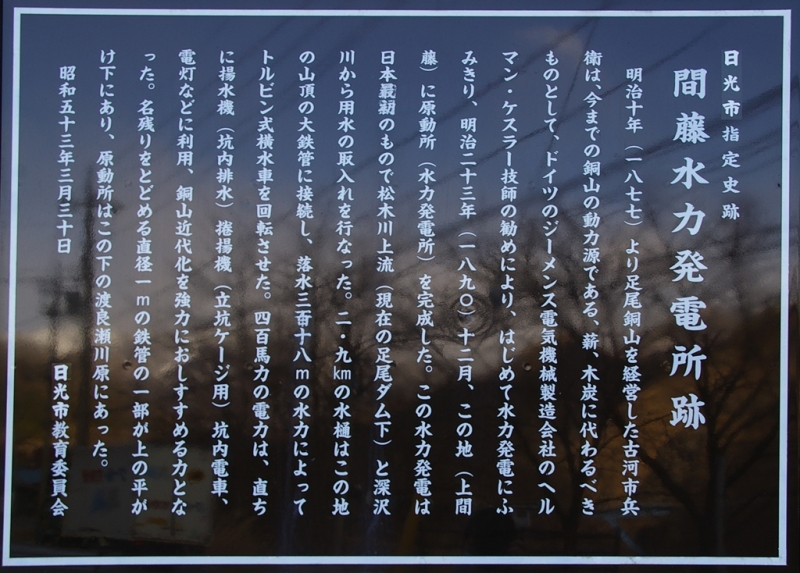 日光市指定史跡
間藤水力発電所跡
明治十年（一八七七）より足尾銅山を経営した古河市兵
衛は、今までの銅山の動力源である、薪、木炭に代わるべき
ものとして、ドイツのジーメンス電気機械製造会社のヘル
マン・ケスラー技師の勧めにより、はじめて水力発電にふ
みきり、明治二十三年（一八九〇）十二月、この地（上間
藤）に原動所（水力発電所）を完成した。この水力発電は
日本最初のもので松木川上流（現在の足尾ダム下）と深沢
川から用水の取入れを行なった。二・九kmの水樋はこの地
の山頂の大鉄管に接続し、落水三百十八mの水力によって
トルビン式横水車を回転させた。四百馬力の電力は、直ち
に揚水機（坑内排水）捲揚機（立坑ケージ用）坑内電車、
電灯などに利用、銅山近代化を強力におしすすめる力とな
った。名残りをとどめる直径一mの鉄管の一部が上の平が
け下にあり、原動所はこの下の渡良瀬川原にあった。
昭和五十三年三月三十日
日光市教育委員会